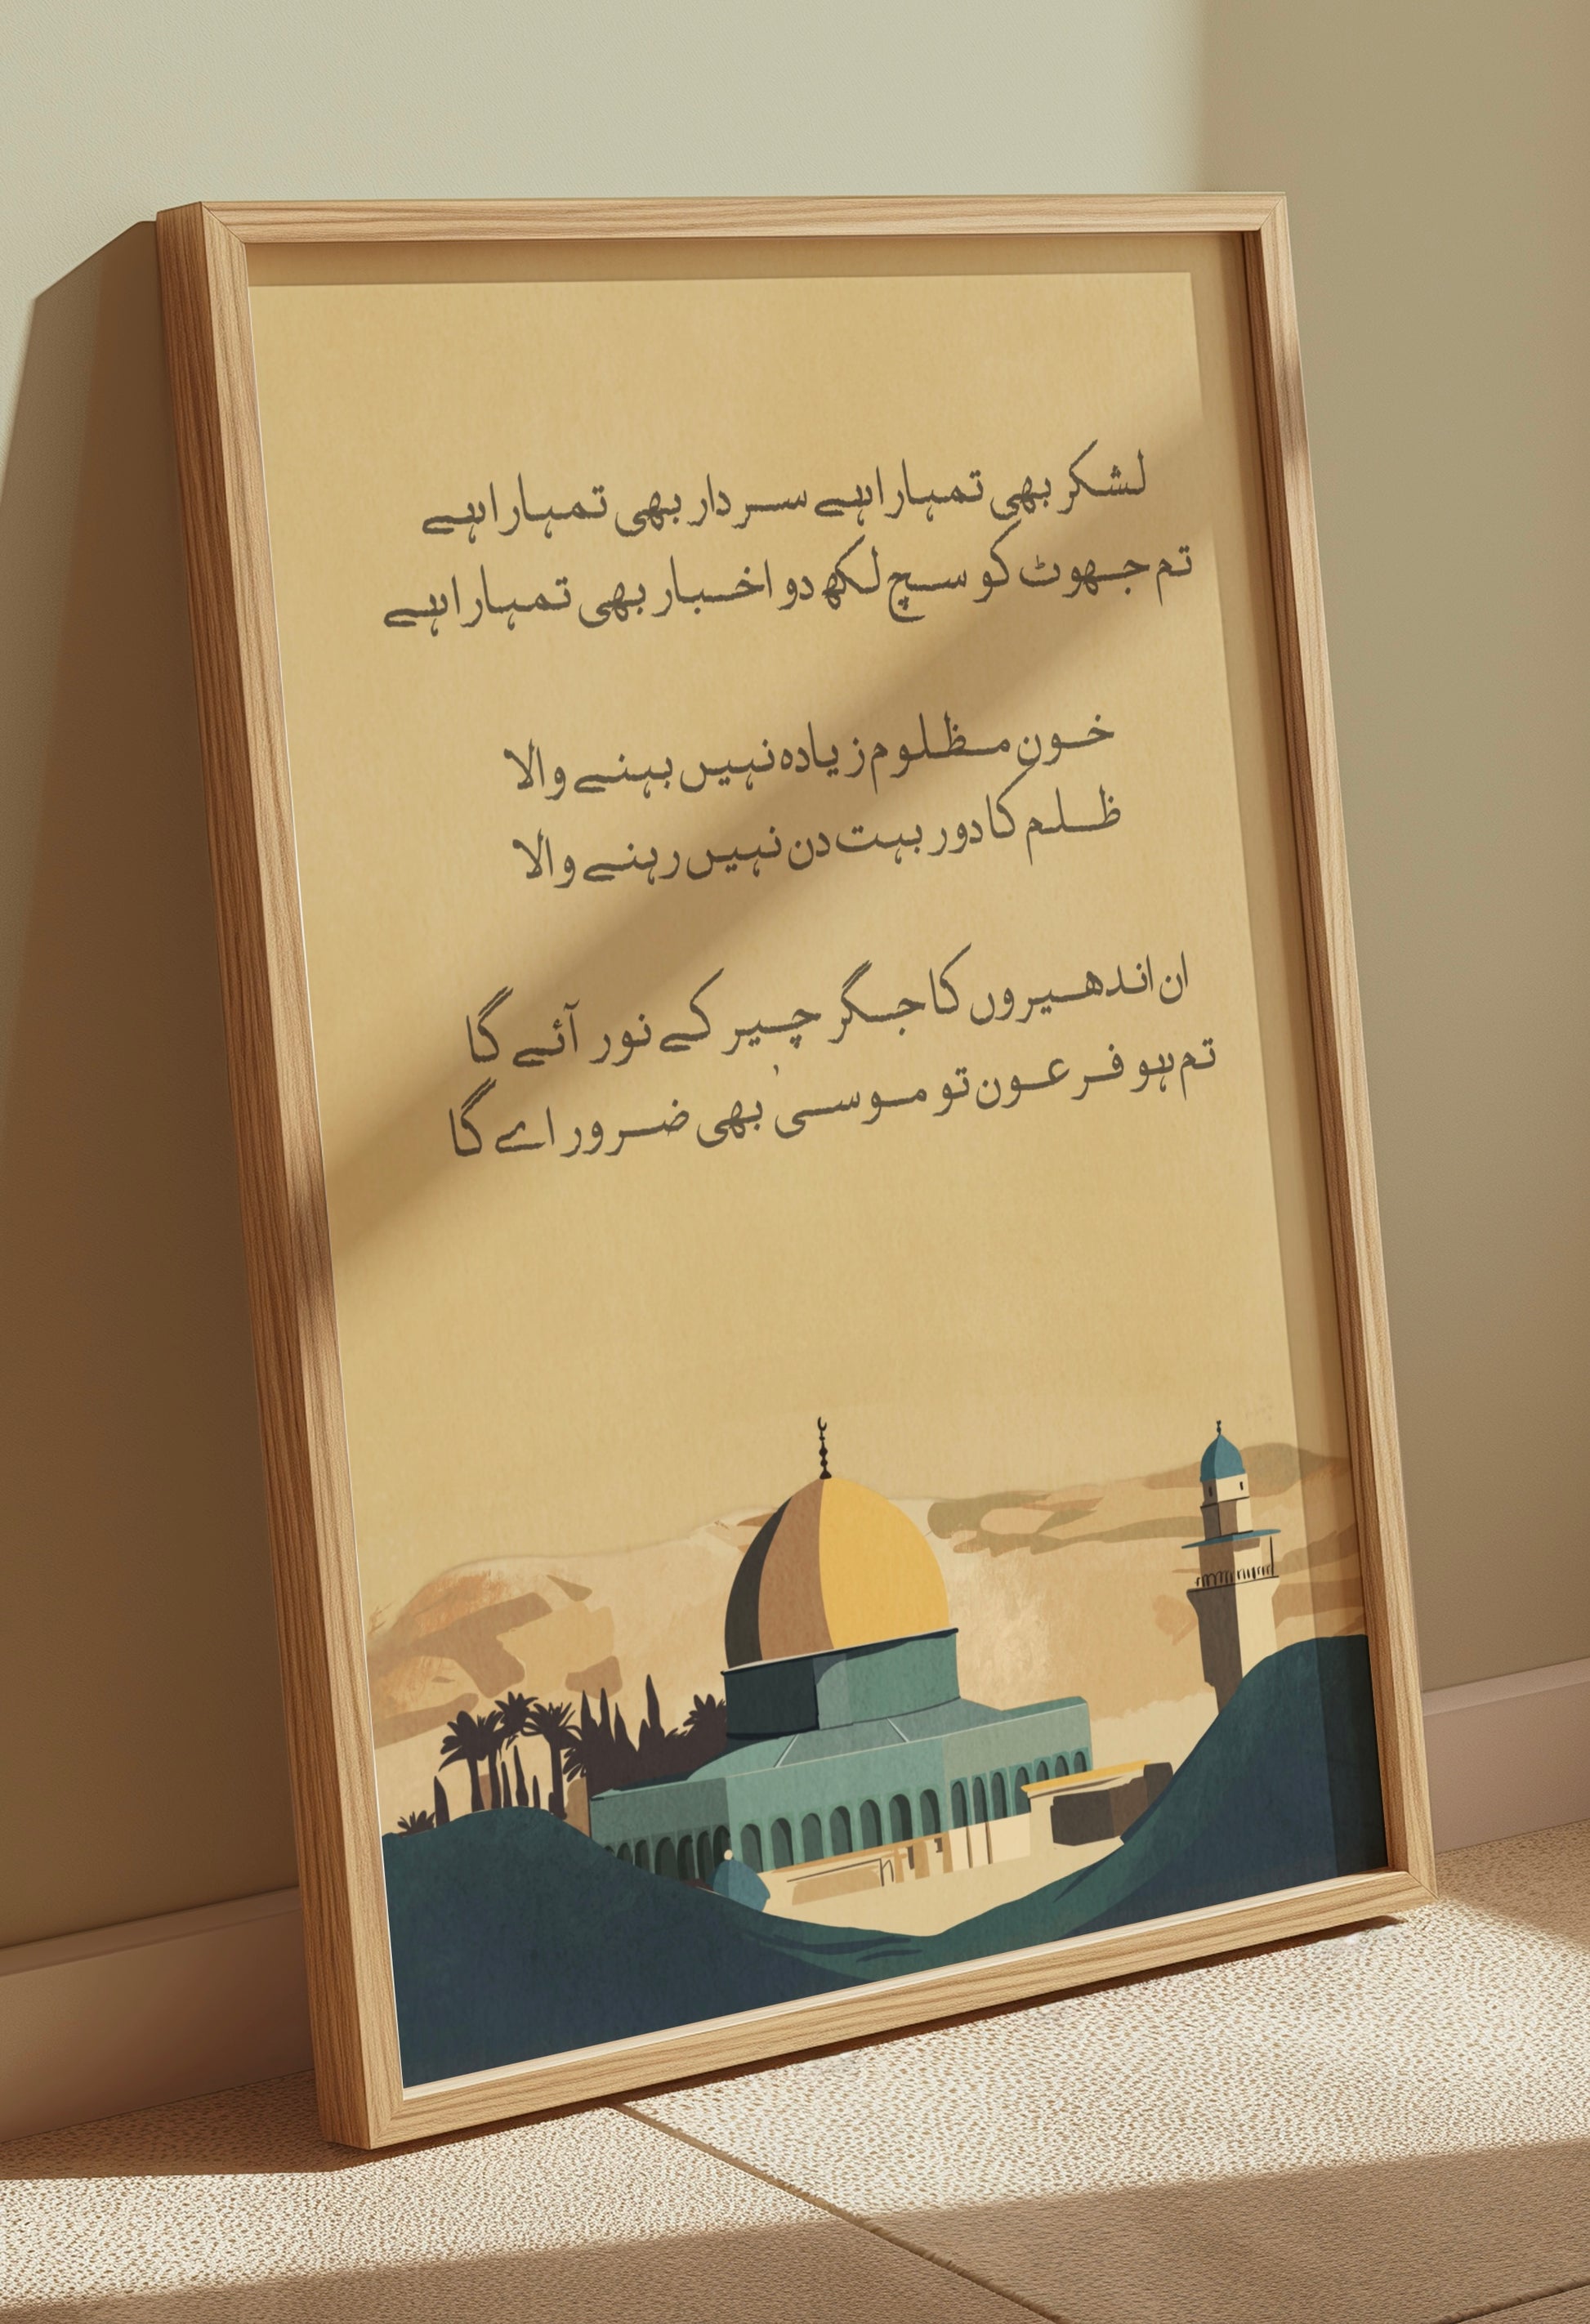 لشکر بھی تمہارا ہے سردار بھی تمہارا ہے
تم جھوٹ کو سچ لکھ دو اخبار بھی تمہارا ہے
خون مظلوم زیادہ نہیں بہنے والا
ظلم کا دور بہت دن نہیں رہنے والا
ان اندھیروں کا جگر چیر کے نور آئے گا
تم ہو فرعون تو موسی بھی ضرور اے گا